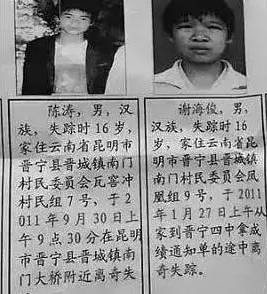 陈涛，男，汉
族，失踪时 16 岁，
家住云南省昆明
市晋宁县晋城镇南门
村民委员会瓦窑冲
村民组 7 号，于 2
011 年 9 月 30 日上午
9 点 30 分在昆明
市晋宁县晋城镇南
门大桥附近离奇失
谢海俊，男，
汉族，失踪时 16
岁，家住云南省昆
明市晋宁县晋城镇
南门村民委员会凤
凰组 9 号，于 2011
年 1 月 27 日上午从
家到晋宁四中拿成
绩通知单的途中离
奇失踪。